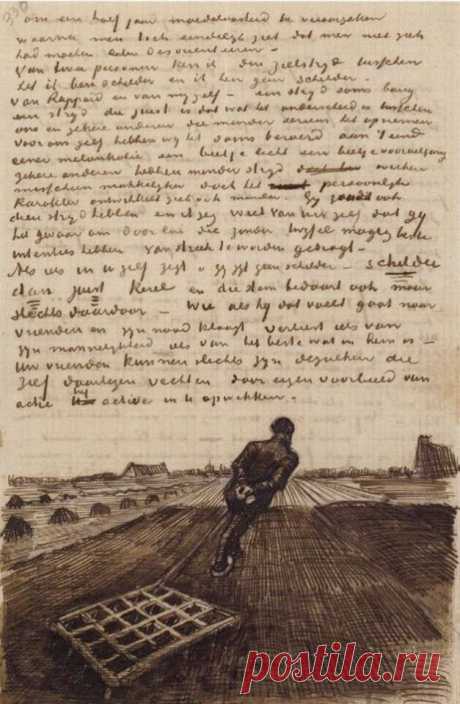 330
om een half jaar moedeloosheid te veroorzaken
waarna men toch eindelijk ziet dat men niet zich
had moeten laten desorienteeren. –
Van twee personen ken ik den zielstryd tusschen
het ik ben schilder en ik ben geen schilder. –
Van Rappard en van myzelf – een stryd soms bang
een stryd die juist is dat wat het onderscheid is tusschen
ons en zekere anderen die minder serieus het opnemen
voor ons zelf hebben wy het soms beroerd aan 't eind
eener melankolie een beetje licht een beetje vooruitgang
zekere anderen hebben minder stryd werken
misschien makkelyker doch het persoonlyk
karakter ontwikkelt zich ook minder. Gy zoudt ook
dien stryd hebben en ik zeg weet van U zelf dat gy
het gevaar om door lui die zonder twyfel magnifieke
intenties hebben van streek te worden gebragt. –
Als iets in U zelf zegt „gy zyt geen schilder – schilder
dan juist kerel en die stem bedaart ook maar
slechts daardoor – Wie als hy dat voelt gaat naar
vrienden en zyn nood klaagt verliest iets van
zyn mannelykheid iets van het beste wat in hem is –
Uw vrienden kunnen slechts zyn degenen die
zelf daartegen vechten door eigen voorbeeld van
actie het active in U opwekken. –
postila.ru